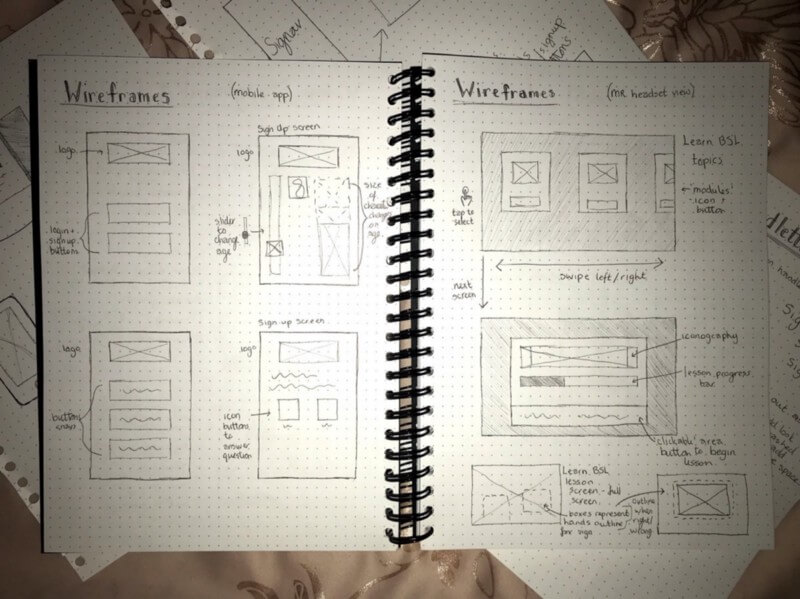 Signar
signup
Wireframes
(mobile app)
logo
login +
signup
button
Sign Up screen
logo
8
slider
to
change
age
size
of
character
changes
on
age.
logo
button
Sign up screen
logo
icon
buttons
to
answer
question
Wireframes
(MR headset view)
Learn BSL
topics
modules'
icon +
button
tap to
select
swipe left/right
next
screen
iconography
lesson progress
bar.
clickable area,
button to begin
lesson
Learn BSL
lesson
screen - full
screen.
boxes represent
hands outline
for sign
outline
when
right/
wrong